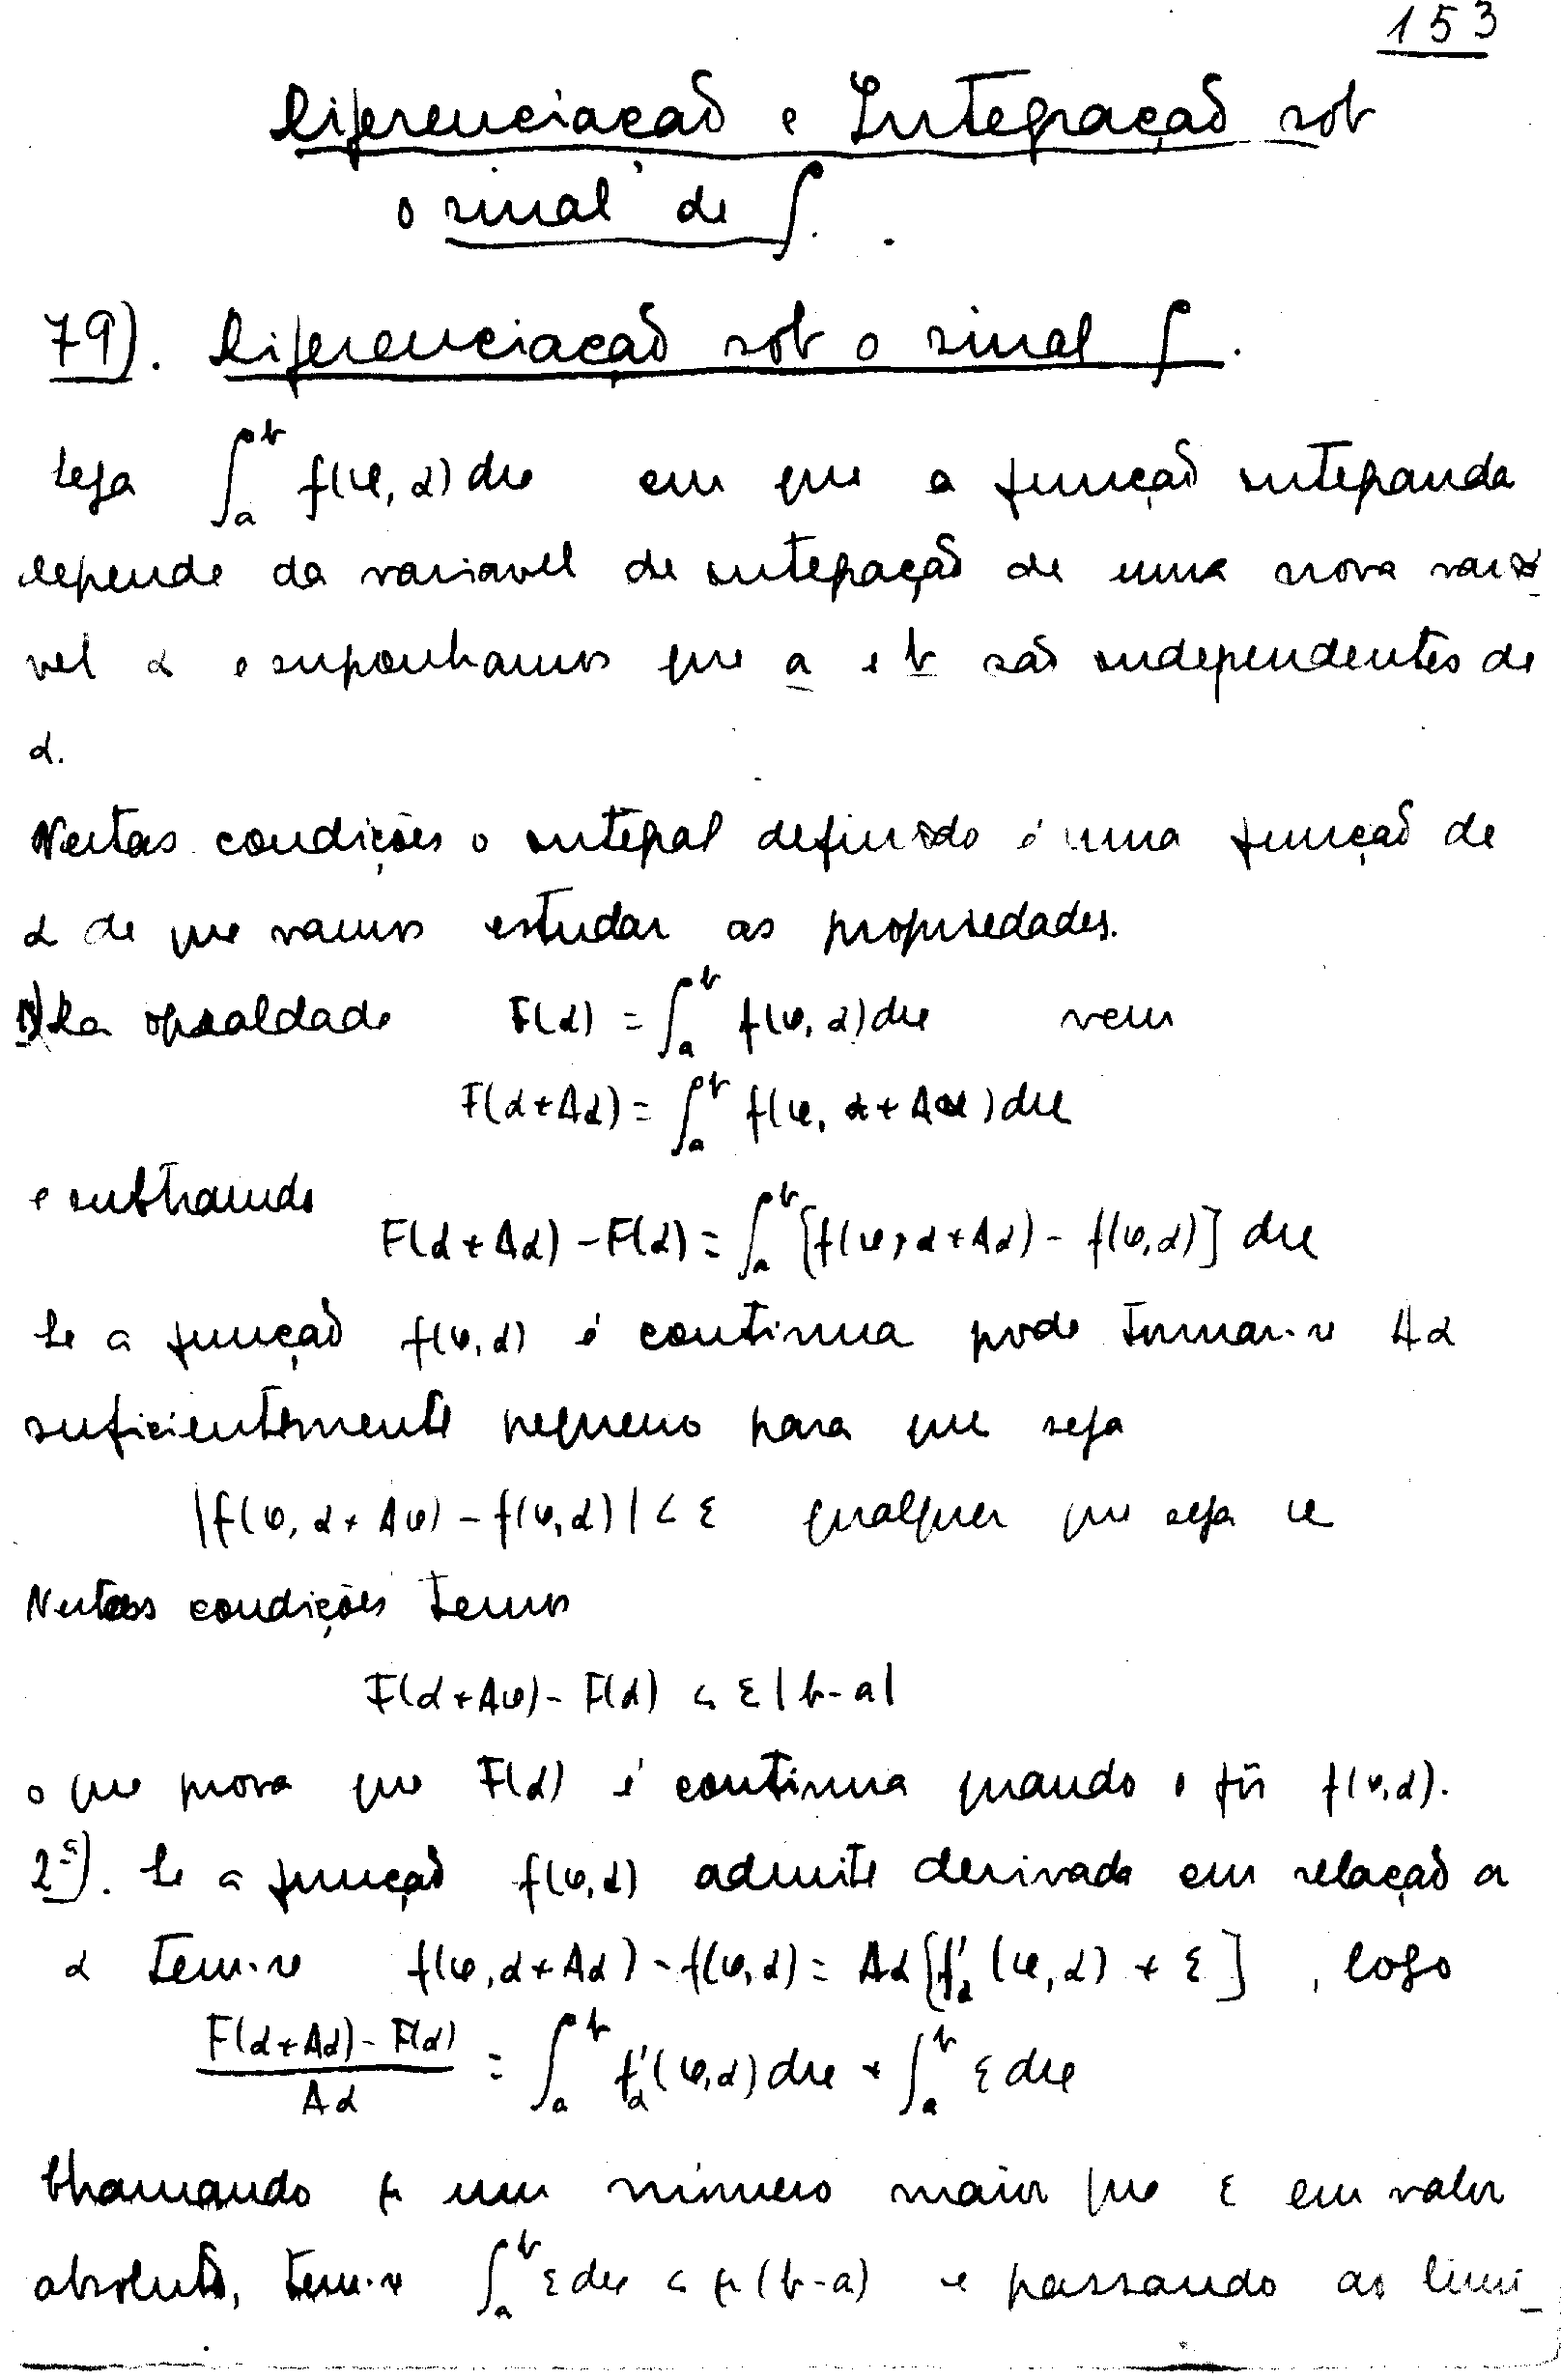 153
Diferenciação e Integração sob
o sinal de ∫.
79). Diferenciação sob o sinal ∫.
Seja ∫_a^b f(x, α) dx em que a função integranda
depende da variavel de integração de uma nova variá
vel α e suponhamos que a e b são independentes de
α.
Nestas condições o integral definido é uma função de
α de que vamos estudar as propriedades.
1) Da igualdade F(α) = ∫_a^b f(x, α) dx vem
F(α+Δα) = ∫_a^b f(x, α+Δα) dx
e subtraindo
F(α+Δα) - F(α) = ∫_a^b [f(x, α+Δα) - f(x, α)] dx
Se a função f(x, α) é continua pode tomar-se Δα
suficientemente pequeno para que seja
|f(x, α+Δx) - f(x, α)| < ε qualquer que seja x
Nestas condições temos
F(α+Δx) - F(α) < ε |b-a|
o que prova que F(α) é continua quando o fôr f(x, α).
2ª). Se a função f(x, α) admite derivada em relação a
α tem-se f(x, α+Δα) - f(x, α) = Δα [f'_α (x, α) + ε] , logo
(F(α+Δα) - F(α))/Δα = ∫_a^b f'_α (x, α) dx + ∫_a^b ε dx
Chamando μ um número maior que ε em valor
absoluto, tem-se ∫_a^b ε dx < μ (b-a) e passando ao limi_